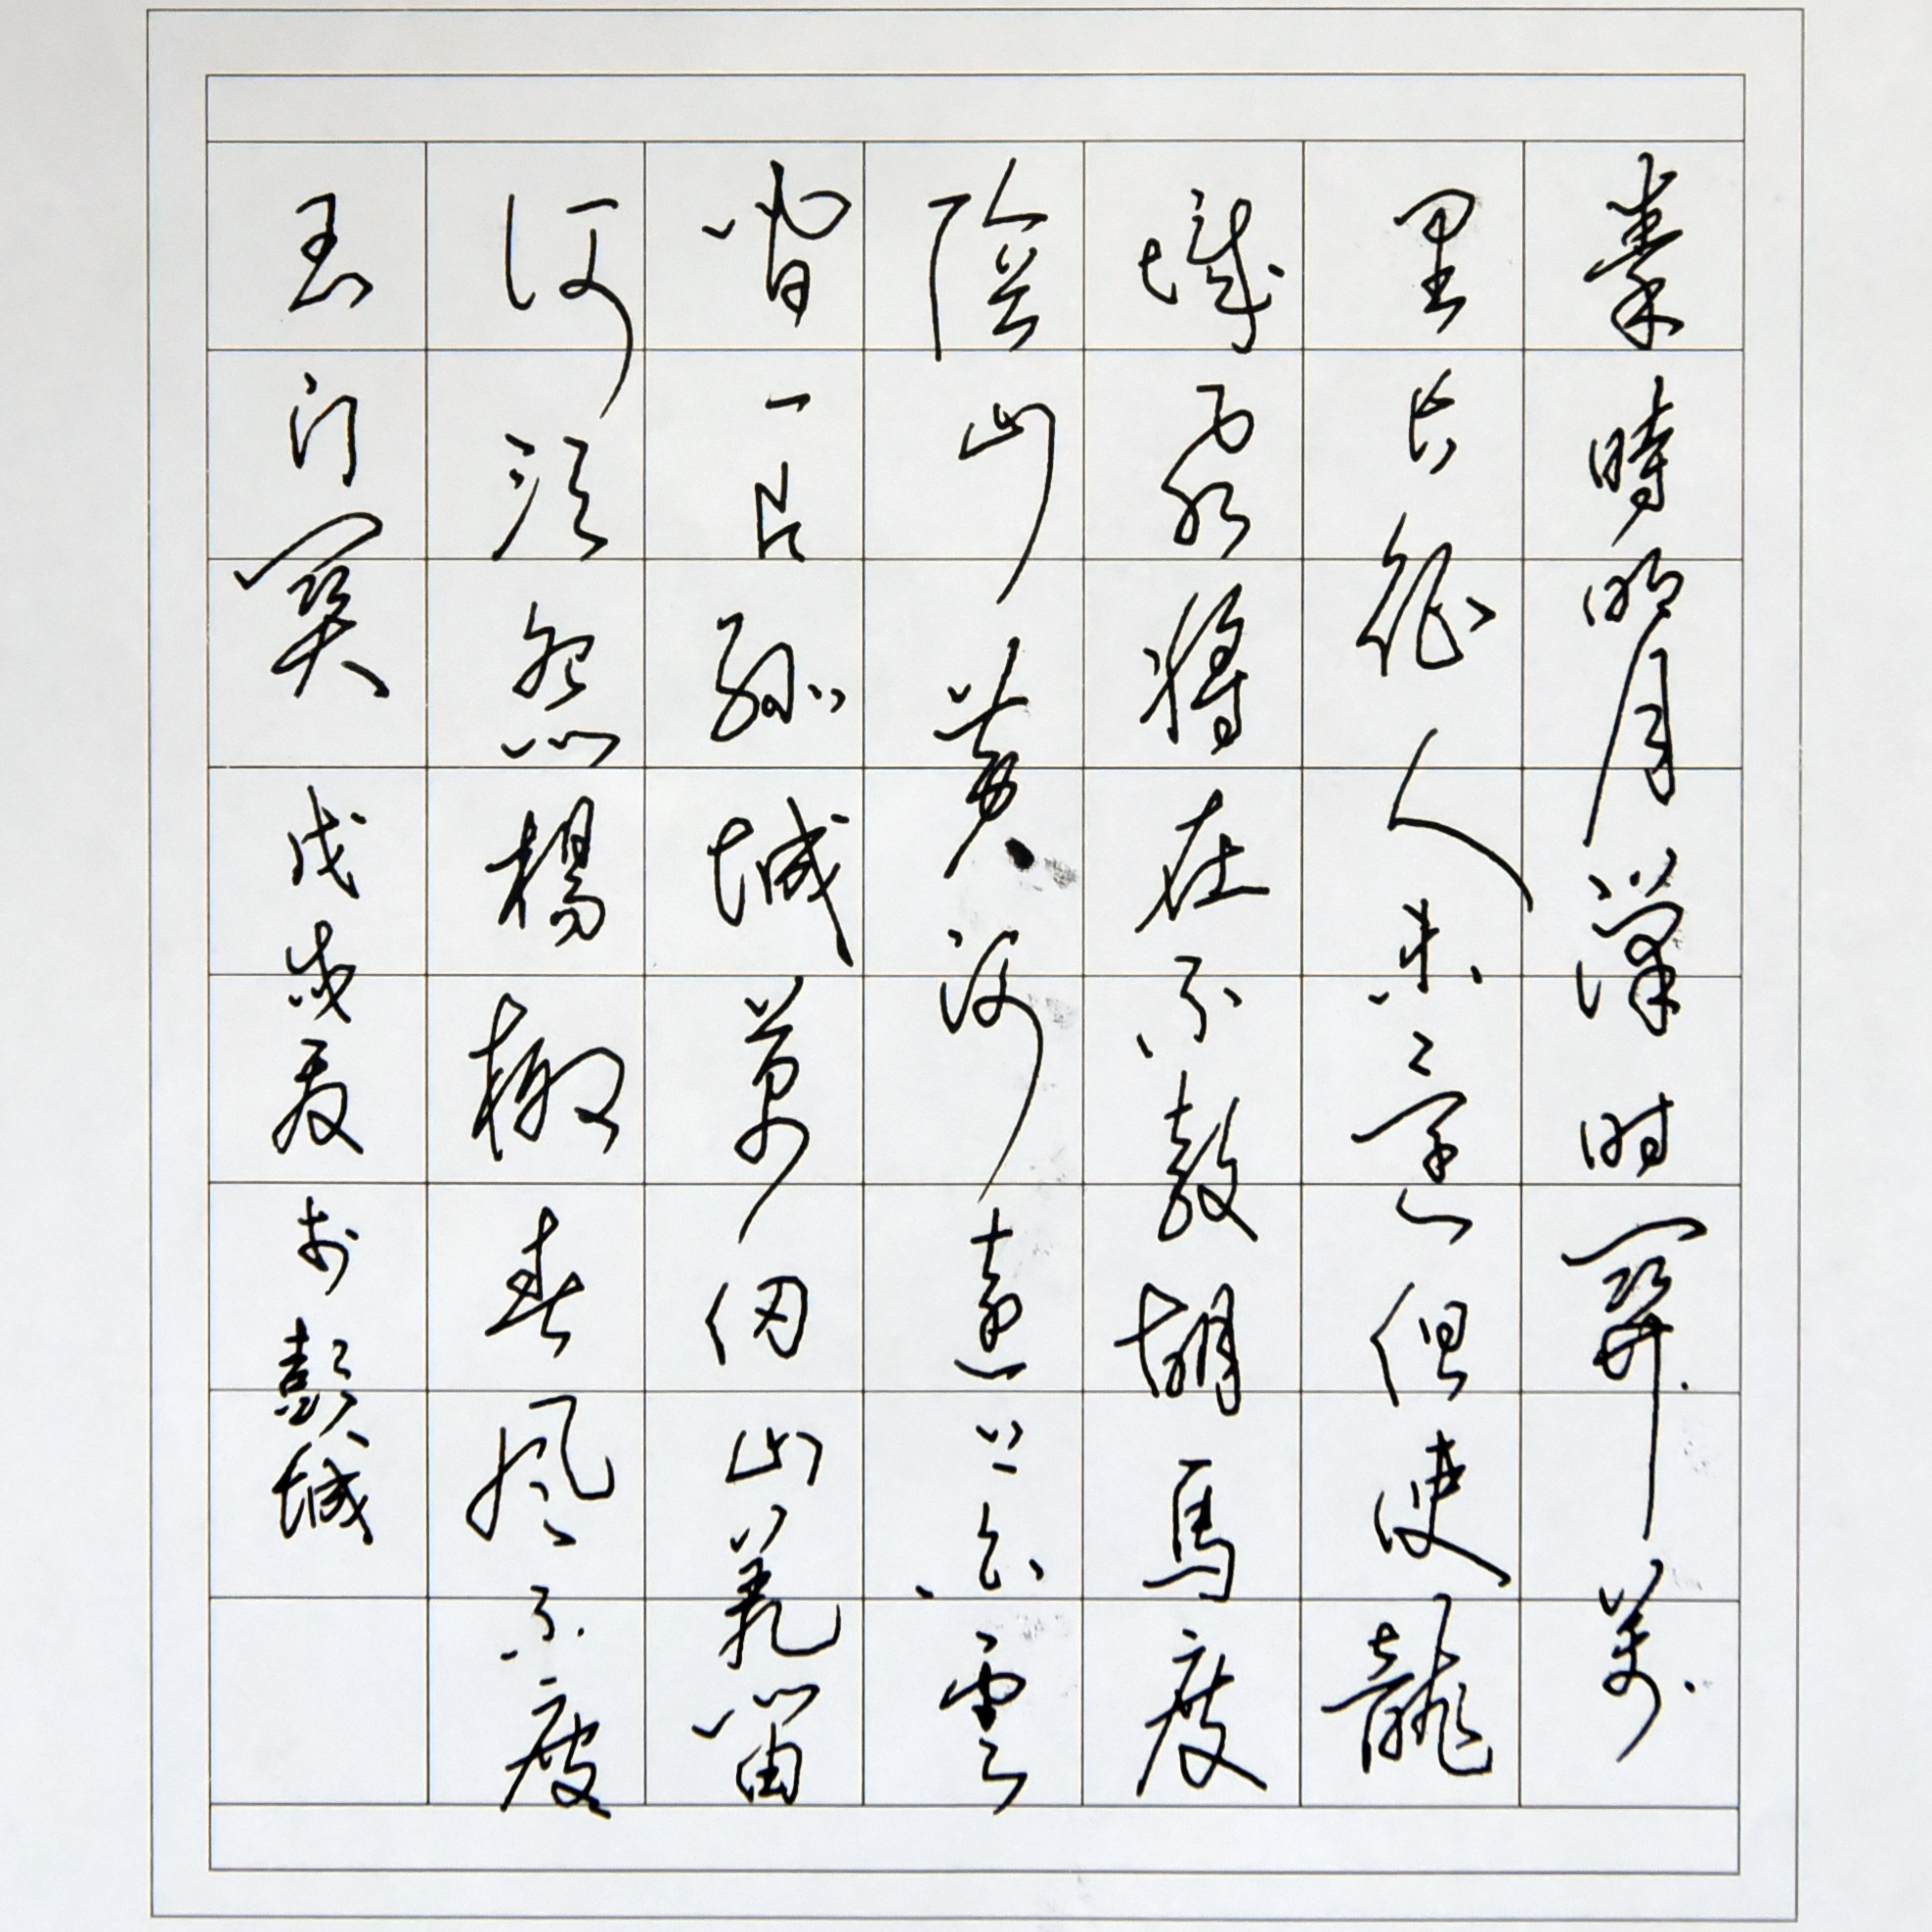 秦時明月漢时關萬
里長征人未還但使龍
城飛將在不教胡馬度
陰山黄河遠上白雲
間一片孤城萬仞山羌笛
何須怨楊柳春風不度
玉门関戊戌夏於彭城